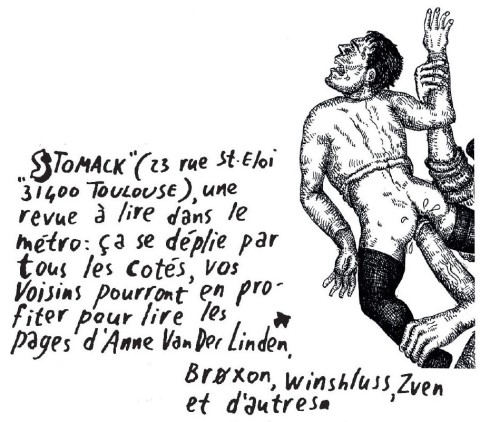 "STOMACK" (23 rue St-Eloi
31400 TOULOUSE), une
revue à lire dans le
métro: ça se déplie par
tous les cotés, vos
voisins pourront en pro-
fiter pour lire les
pages d'Anne Van Der Linden,
Brøxon, Winshluss, Zven
et d'autres.